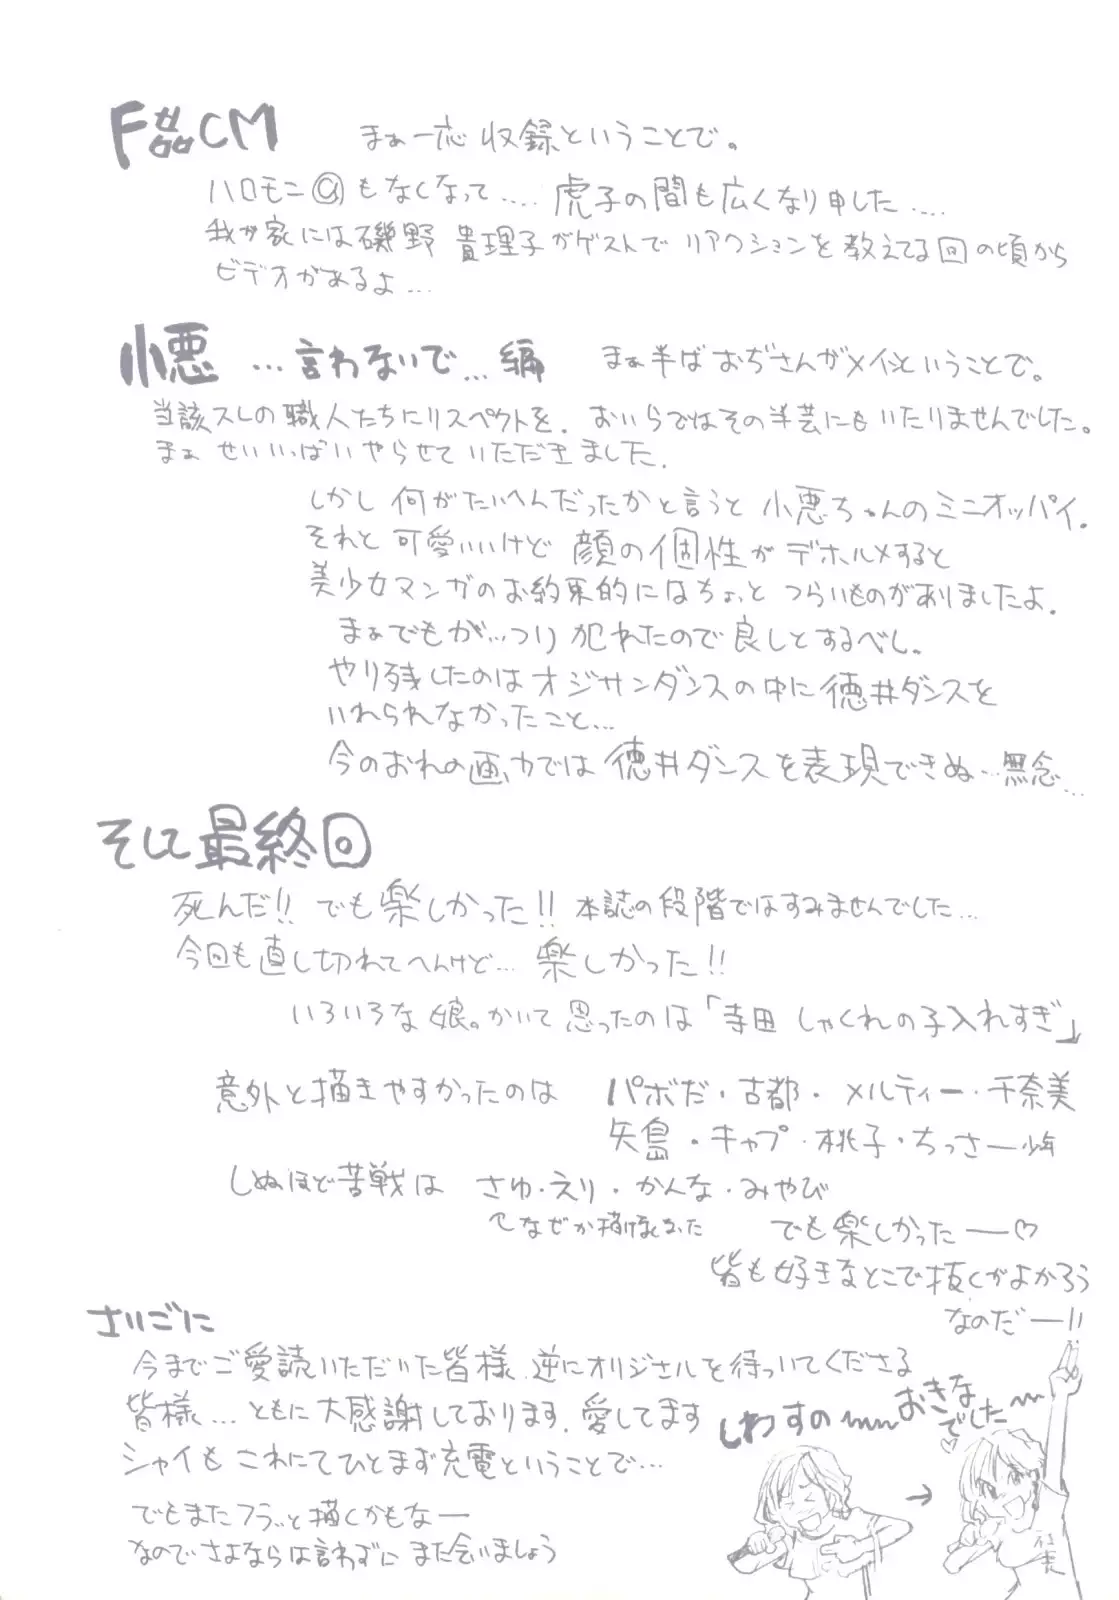 F姦CM
まぁ一応 収録ということで。
ハロモニ@もなくなって.... 虎子の間も広くなり申した....
我が家には磯野 貴理子がゲストで リアクションを教えてる回の頃から
ビデオがあるよ...
小悪 ...言わないで...編
まぁ半ば おぢさんがメインということで。
当該スレの職人たちにリスペクトを. おいらではその半芸にもいたりませんでした。
まぁ せいいっぱいやらせていただきました.
しかし 何がたいへんだったかと言うと 小悪ちゃんのミニオッパイ.
それと 可愛いいけど 顔の個性がデホルメすると
美少女マンガのお約束的にはちょっと つらいものがありましたよ.
まぁでもが...つり 犯れたので良しとするべし。
やり残したのはオジサンダンスの中に徳井ダンスを
いれられなかったこと...
今のおれの画力では 徳井ダンスを表現できぬ...無念...
そして最終回
死んだ!! でも楽しかった!! 本誌の段階ではすみませんでした...
今回も直し切れてへんけど... 楽しかった!!
いろいろな娘。かいて思ったのは「寺田 しゃくれの子入れすぎ」
意外と描きやすかったのは パボだ・古都・メルティー・千奈美
矢島・キャプ・桃子・ちっさー少年
しぬほど苦戦は さゆ・えり・かんな・みやび
なぜか
でも楽しかったー♡
皆も好きなとこで抜くがよかろう
なのだー!!
さいごに
今までご愛読いただいた皆様、逆にオリジナルを待っていてくださる
皆様...ともに大感謝しております. 愛してます
シャイも これにてひとまず充電ということで...
でもまたフラッと描くかもなー
なのでさよならは言わずに また会いましょう
しわすの〜
おきな
でした〜